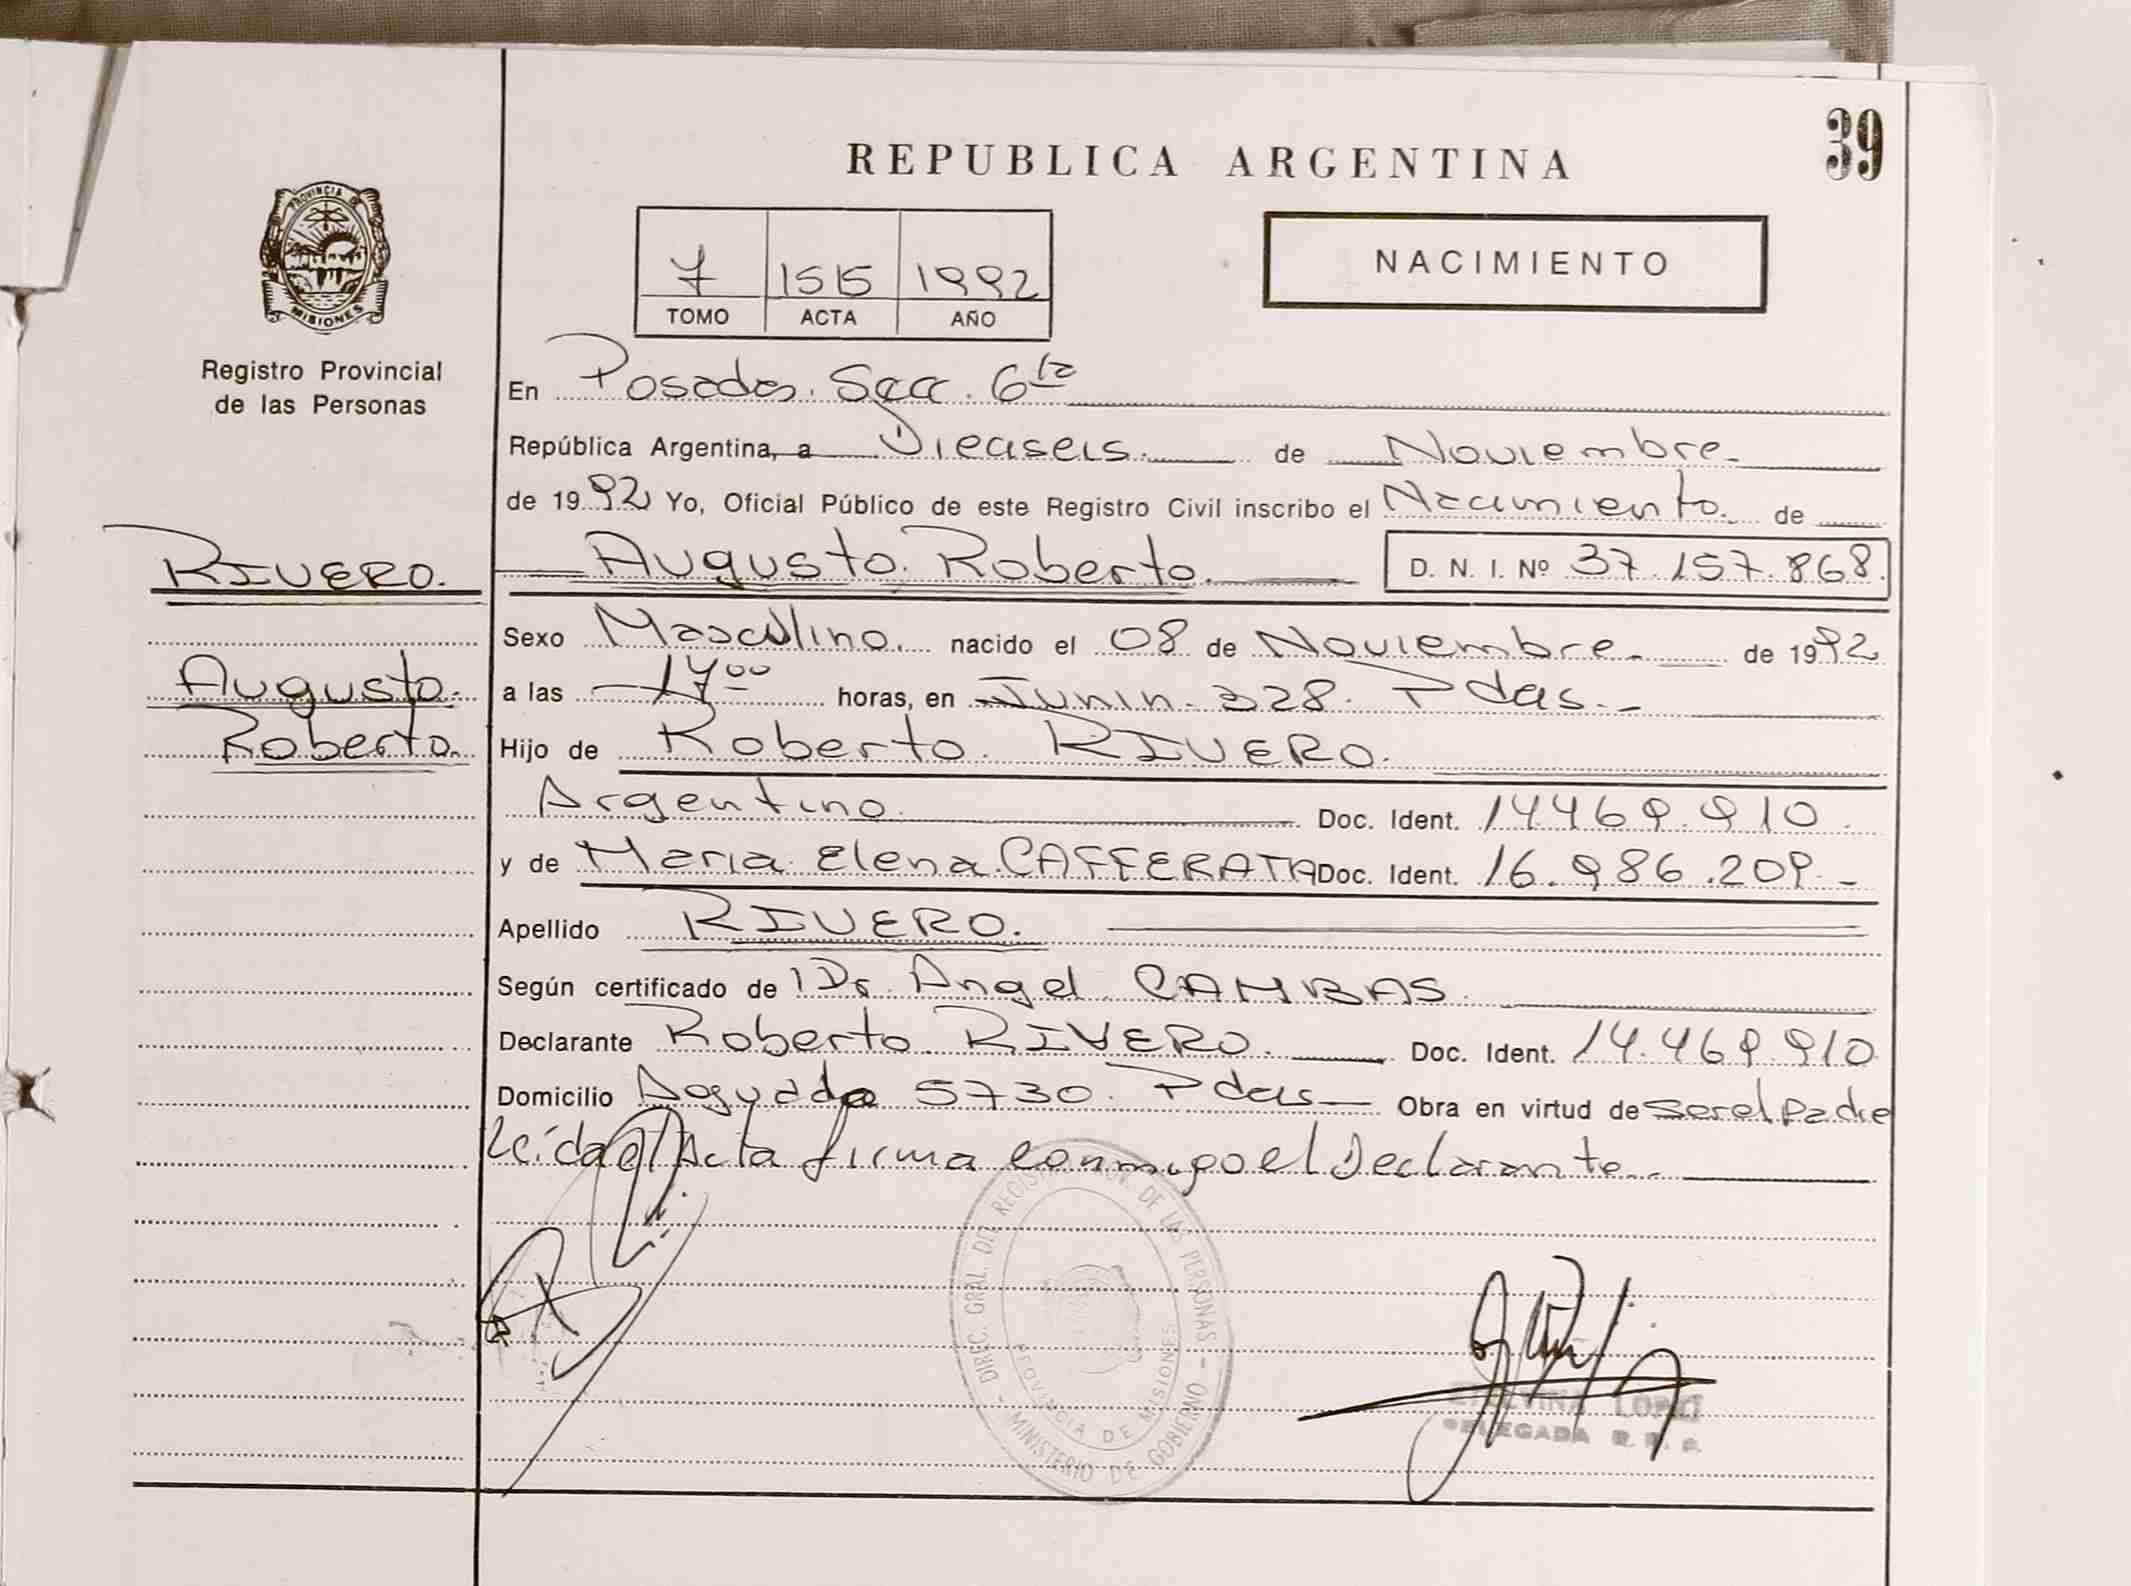 39
REPUBLICA ARGENTINA
PROVINCIA DE
MISIONES
Registro Provincial
de las Personas
7 1515 1992
TOMO ACTA AÑO
NACIMIENTO
En Posadas. Secc. 6ta
República Argentina, a Dieciseis. de Noviembre.
de 1992 Yo, Oficial Público de este Registro Civil inscribo el Nacimiento. de
RIVERO. Augusto. Roberto. D. N. I. Nº 37.157.868.
Sexo Masculino. nacido el 08 de Noviembre. de 1992
Augusto. a las 17 00 horas, en Junin. 328. Pdas.
Roberto. Hijo de Roberto. RIVERO.
Argentino. Doc. Ident. 14.469.910.
y de Maria. Elena. CAFFERATA Doc. Ident. 16.986.209.-
Apellido RIVERO.
Según certificado de Dr. Angel CAMBAS.
Declarante Roberto RIVERO. Doc. Ident. 14.469.910
Domicilio 5730. Pdas Obra en virtud de Ser el Padre
Leída el Acta firma conmigo el Declarante.
- DIREC. GRAL. DEL REGISTRO PROV. DE LAS PERSONAS -
MINISTERIO DE GOBIERNO
PROVINCIA DE MISIONES
ETELVINA
DELEGADA R. P. P.